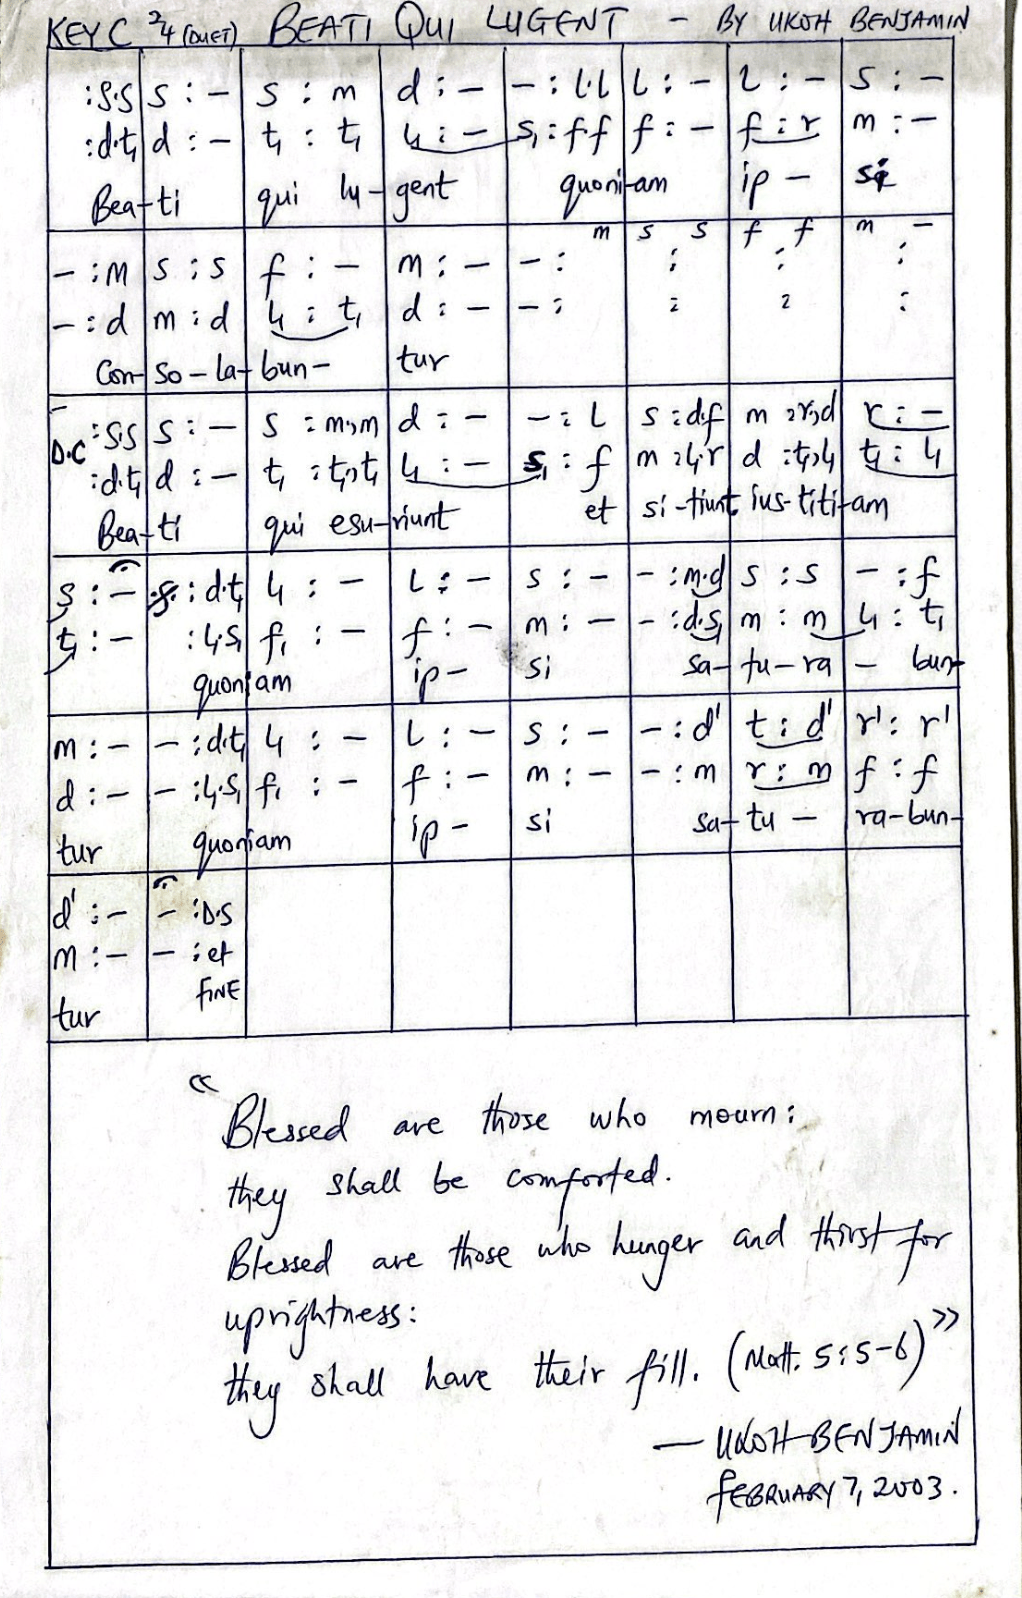 KEY C 2/4 (DUET) BEATI QUI LUGENT - BY UKOH BENJAMIN
:s.s | s : - | s : m | d : - | - : l.l | l : - | l : - | s : -
:d.t₁ | d : - | t₁ : t₁ | l₁ : - | s₁ : f f | f : - | f : r | m : -
Bea-ti qui lu-gent quoni-am ip - si
m | s s | f f | m -
- : m | s : s | f : - | m : - | - : | : | : | :
- : d | m : d | l₁ : t₁ | d : - | - : | : | : | :
Con-so-la-bun- tur
D.C :s.s | s : - | s : m,m | d : - | - : l | s : d.f | m : r,d | r : -
:d.t₁ | d : - | t₁ : t₁,t₁ | l₁ : - | s₁ : f | m : l₁.r | d : t₁,l₁ | t₁ : l₁
Bea-ti qui esu-riunt et si-tiunt ius-titi-am
s : - | : d.t₁ | l₁ : - | l : - | s : - | - : m.d | s : s | - : f
t₁ : - | : l₁.s₁ | f₁ : - | f : - | m : - | - : d.s₁ | m : m | l₁ : t₁
quoniam ip- si sa-tu-ra - bun-
m : - | - : d.t₁ | l₁ : - | l : - | s : - | - : d' | t : d' | r' : r'
d : - | - : l₁.s₁ | f₁ : - | f : - | m : - | - : m | r : m | f : f
tur quoniam ip- si sa-tu - ra-bun-
d' : - | - : D.S
m : - | - : et
FINE
tur
"Blessed are those who mourn:
they shall be comforted.
Blessed are those who hunger and thirst for
uprightness:
they shall have their fill. (Matt. 5:5-6)"
- UKOH BENJAMIN
FEBRUARY 7, 2003.